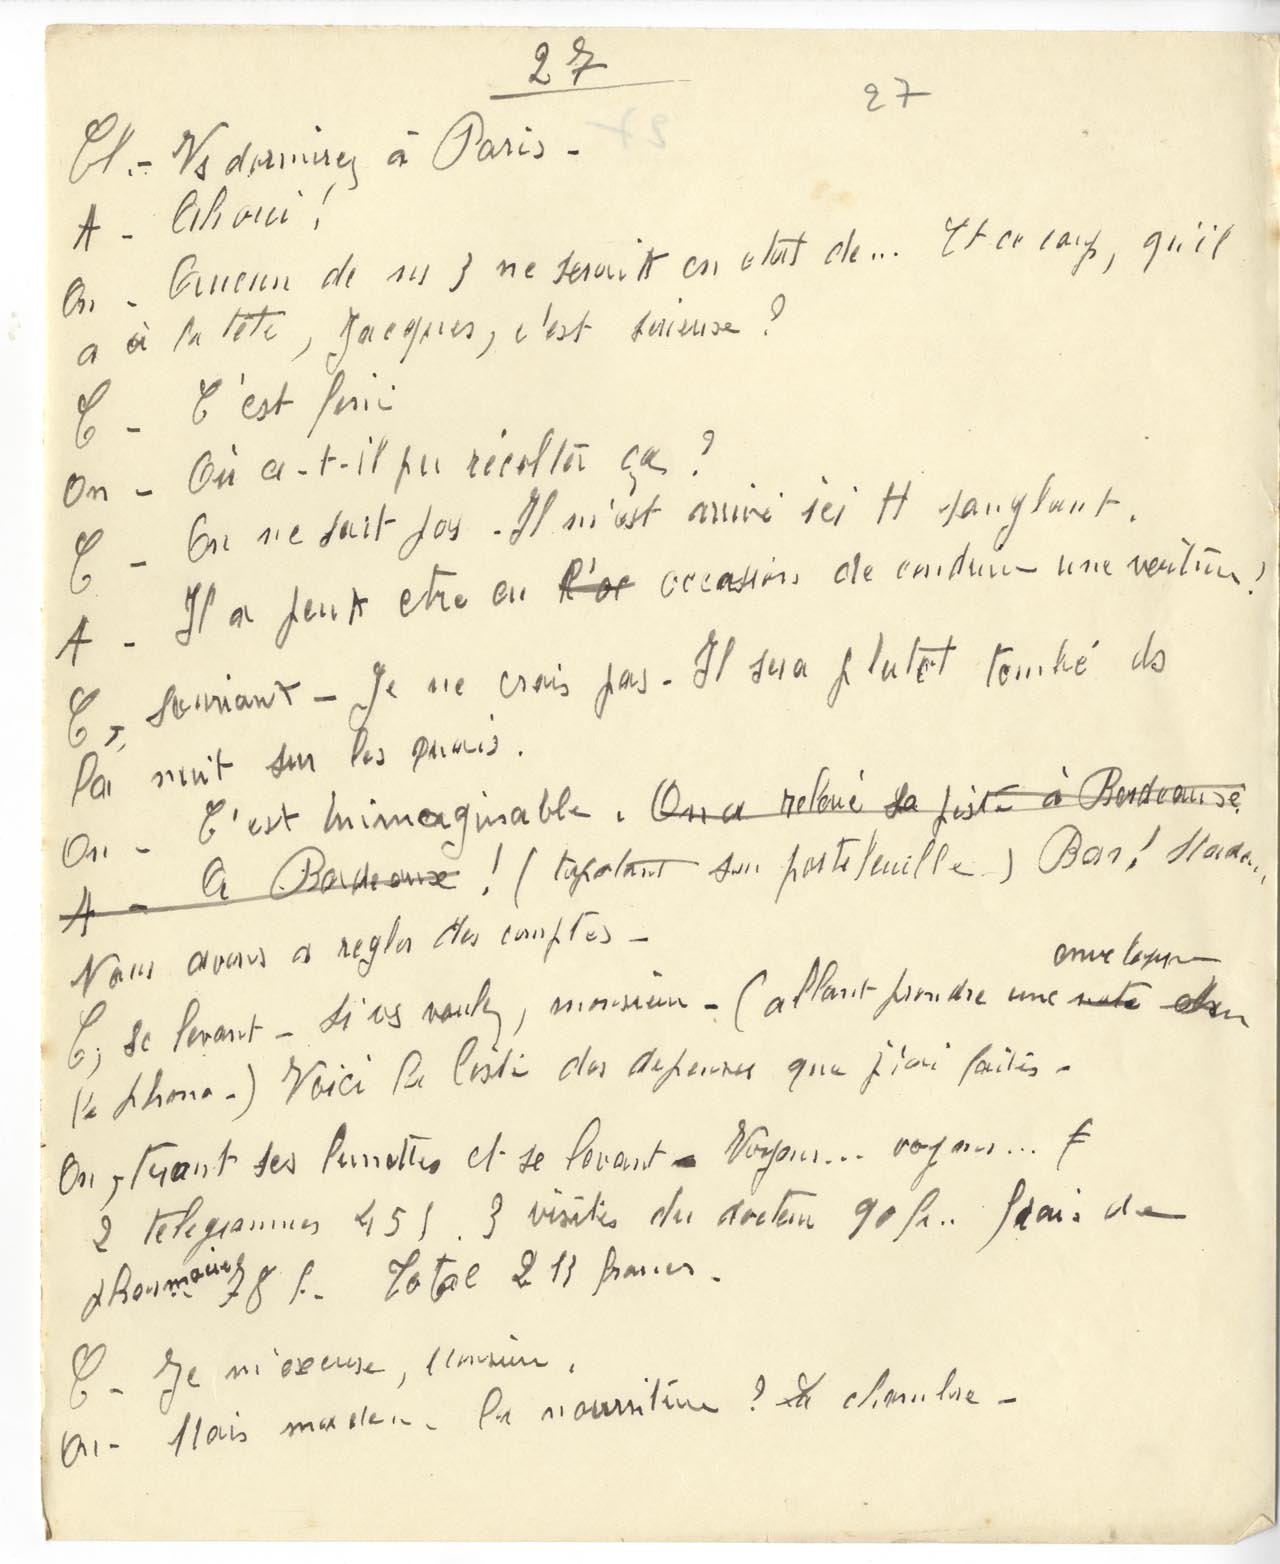 27
27
Cl. - Vs dormirez à Paris -
A - Ah oui !
On - Aucun de ns 3 ne serait en état de... Et ce coup, qu'il
a à la tête, Jacques, c'est sérieuse ?
C - C'est fini
On - Où a-t-il pu récolter ça ?
C - On ne sait pas - Il m'est arrivé ici tt sanglant.
A - Il a peut etre eu l'oc occasion de conduire une voiture ?
C, souriant - Je ne crois pas - Il sera plutôt tombé ds
la nuit sur les quais.
On - C'est inimaginable. On a relevé sa piste à Bordeaux
A - A Bordeaux ! (tapotant son portefeuille) Bon !
Nous avons a regler des comptes -
enveloppe
C, se levant - Si vs voulez, monsieur - (allant prendre une note
le phono -) Voici la liste des depenses que j'ai faites -
On, tirant ses lunettes et se levant - Voyons... voyons...
2 telegrammes 45 f. 3 visites du docteur 90 fr.. frais de
pharmacie 78 f. Total 213 francs.
C - Je m'excuse, Monsieur.
On - Mais madem. la nourriture ? La chambre -